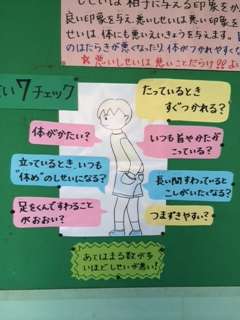 しせいは 相手に与える印象をか
良い印象を与え、悪いしせいは 悪い印象を
せいは 体にも悪いえいきょうを与えます。
のはたらきが悪くなったり、体がつかれやすく
悪いしせいは悪いことだらけ
い7チェック
たっているとき
すぐつかれる?
体がかたい?
いつも首やかたが
こっている?
立っているとき、いつも
"休め"のしせいになる?
長い間すわっていると
こしがいたくなる?
足をくんですわること
がおおい?
つまずきやすい?
あてはまる数が多
いほどしせいが悪い!